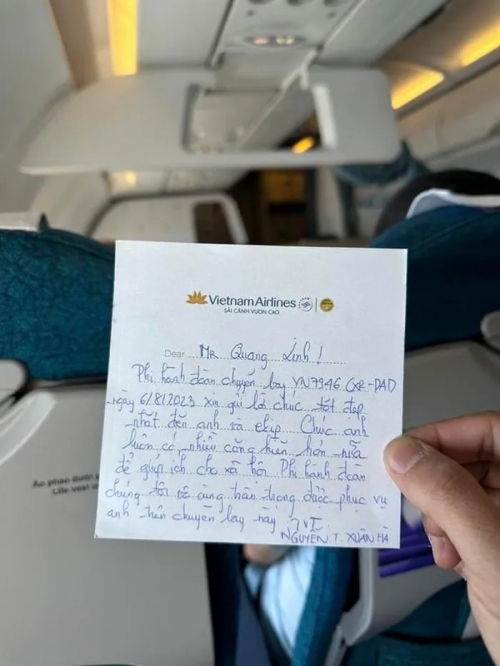 Vietnam Airlines
SẢI CÁNH VƯƠN CAO
Dear MR Quang Linh!
Phi hành đoàn chuyến bay VN7946 CXR-DAD
ngày 6/8/2023 xin gửi lời chúc tốt đẹp
nhất đến anh và ekip. Chúc anh
luôn có nhiều cống hiến hơn nữa
để giúp ích cho xã hội. Phi hành đoàn
chúng tôi vô cùng trân trọng được phục vụ
anh trên chuyến bay này
NGUYEN T. XUÂN HÀ
Áo phao dưới g
Life vest u